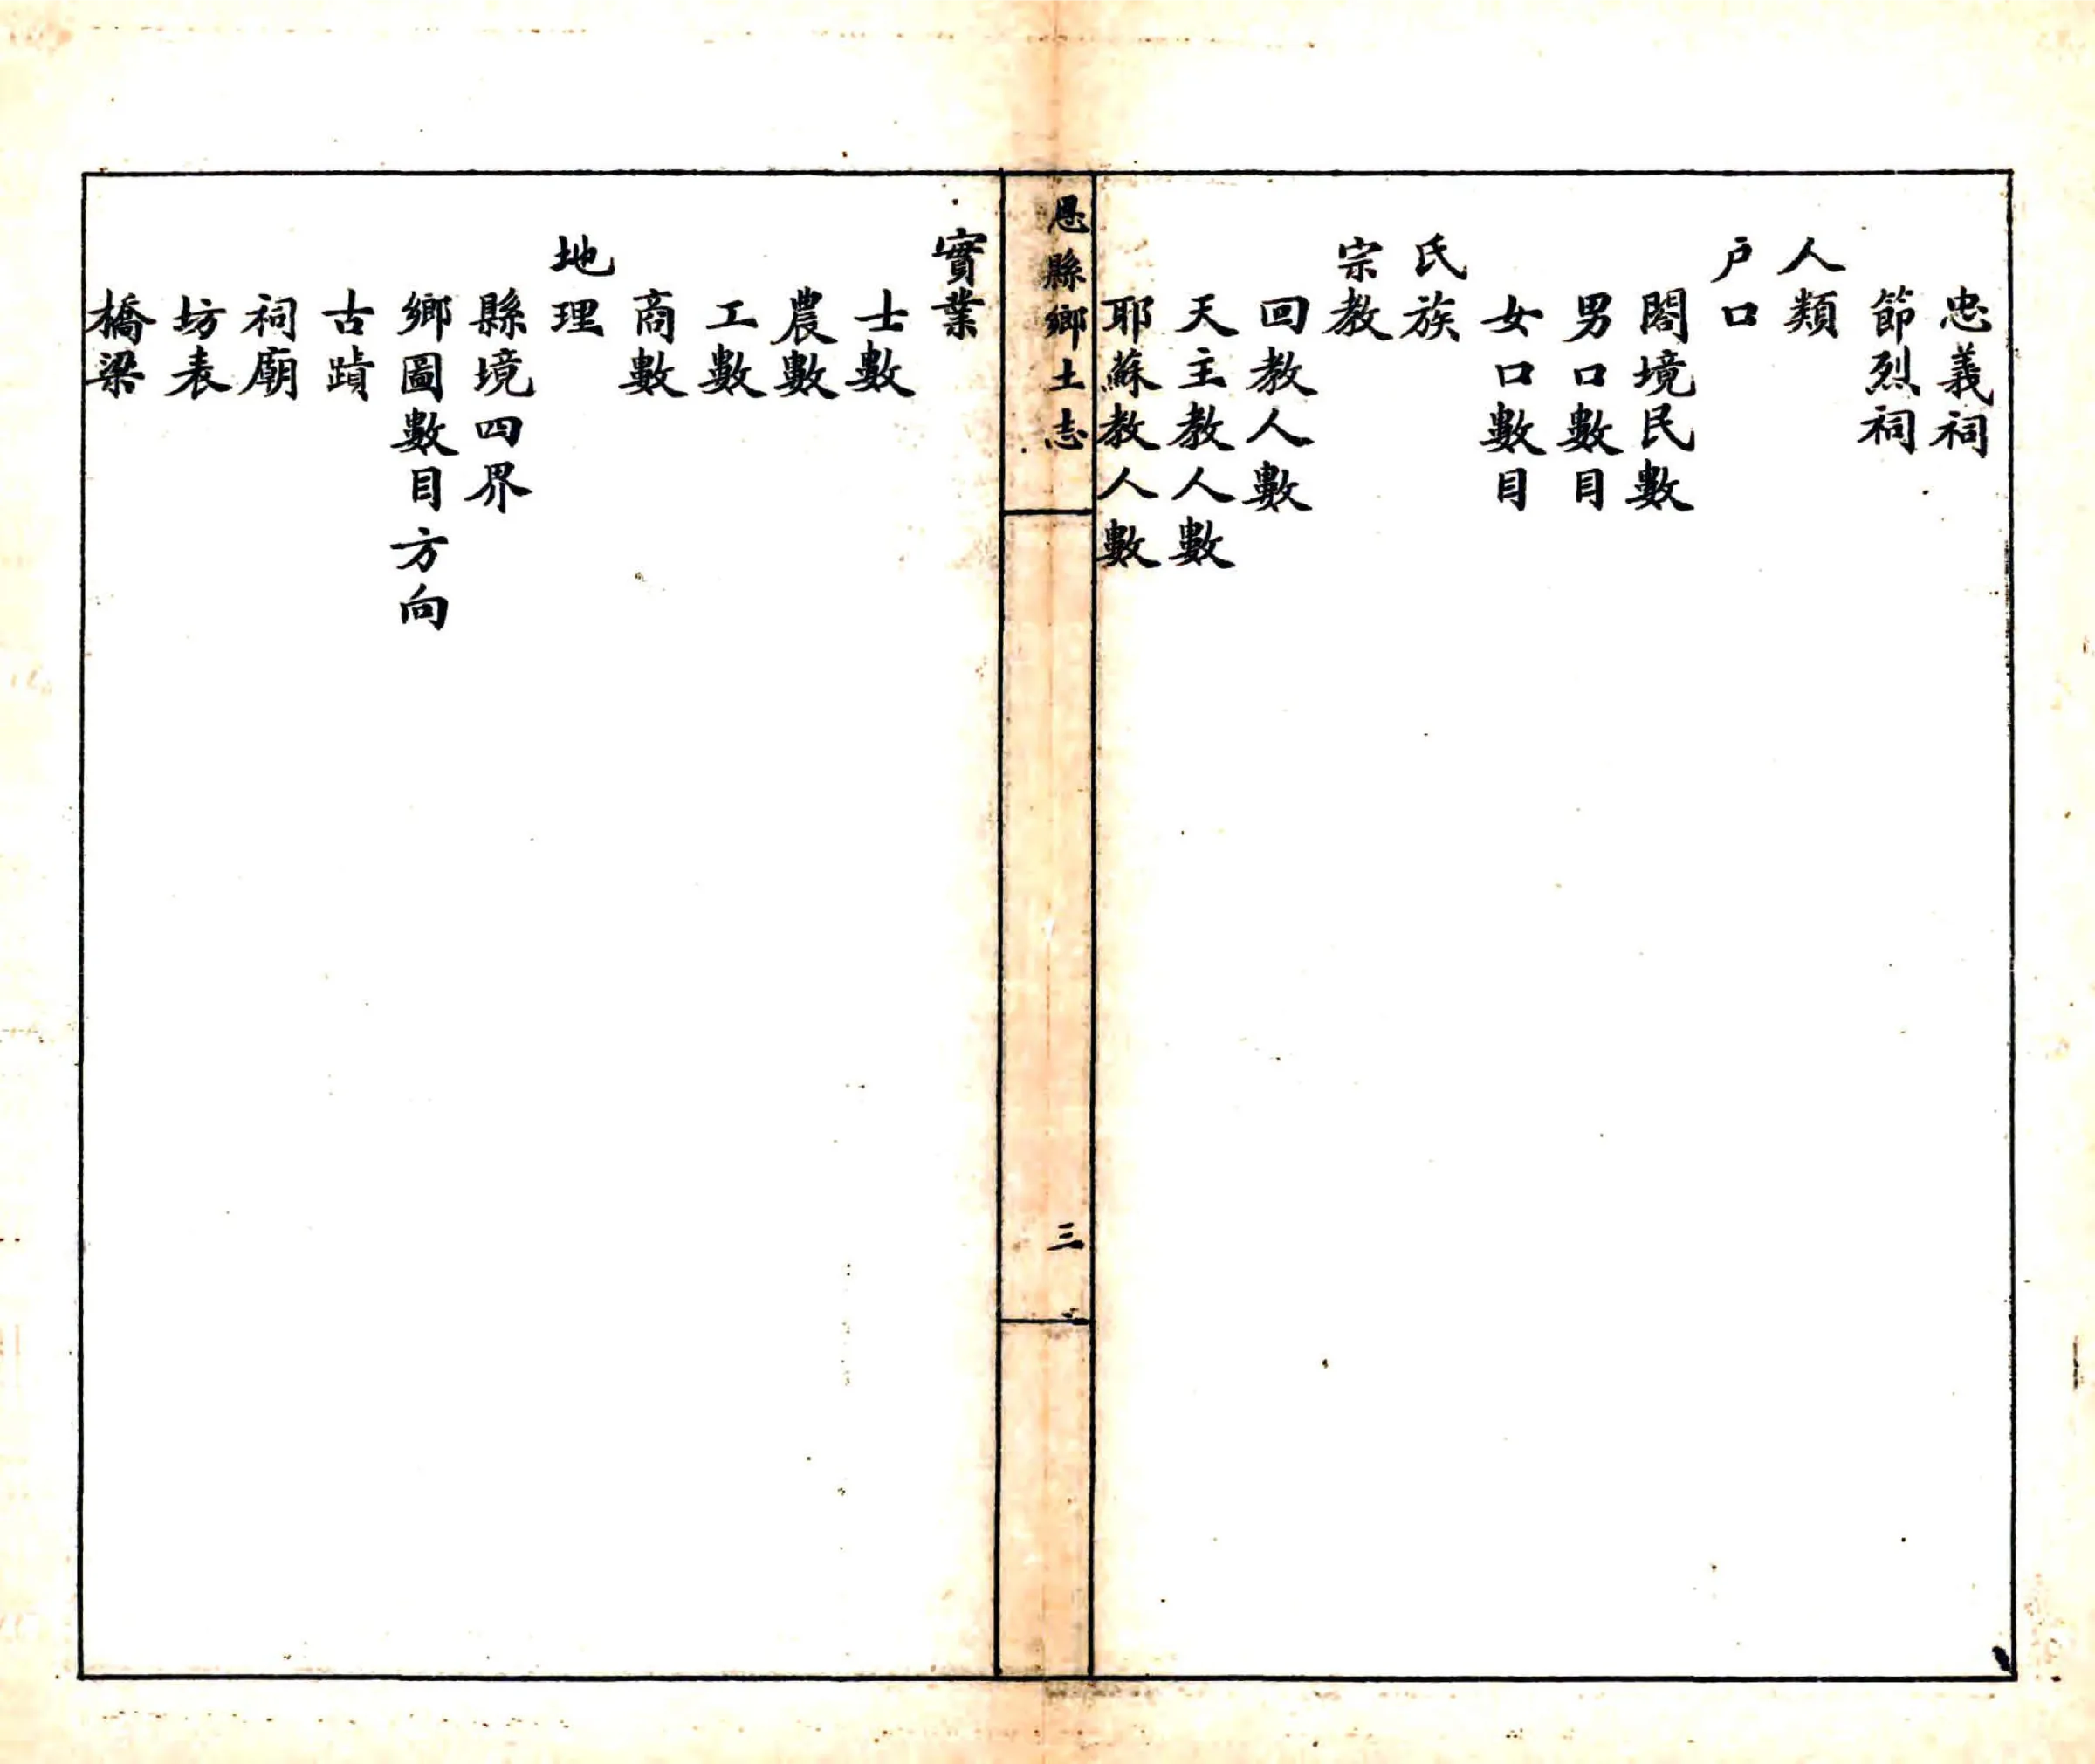 忠義祠
節烈祠
人類
户口
閤境民數
男口數目
女口數目
氏族
宗教
回教人數
天主教人數
耶蘇教人數
恩縣鄉土志
三
實業
士數
農數
工數
商數
地理
縣境四界
鄉圖數目方向
古蹟
祠廟
坊表
橋梁